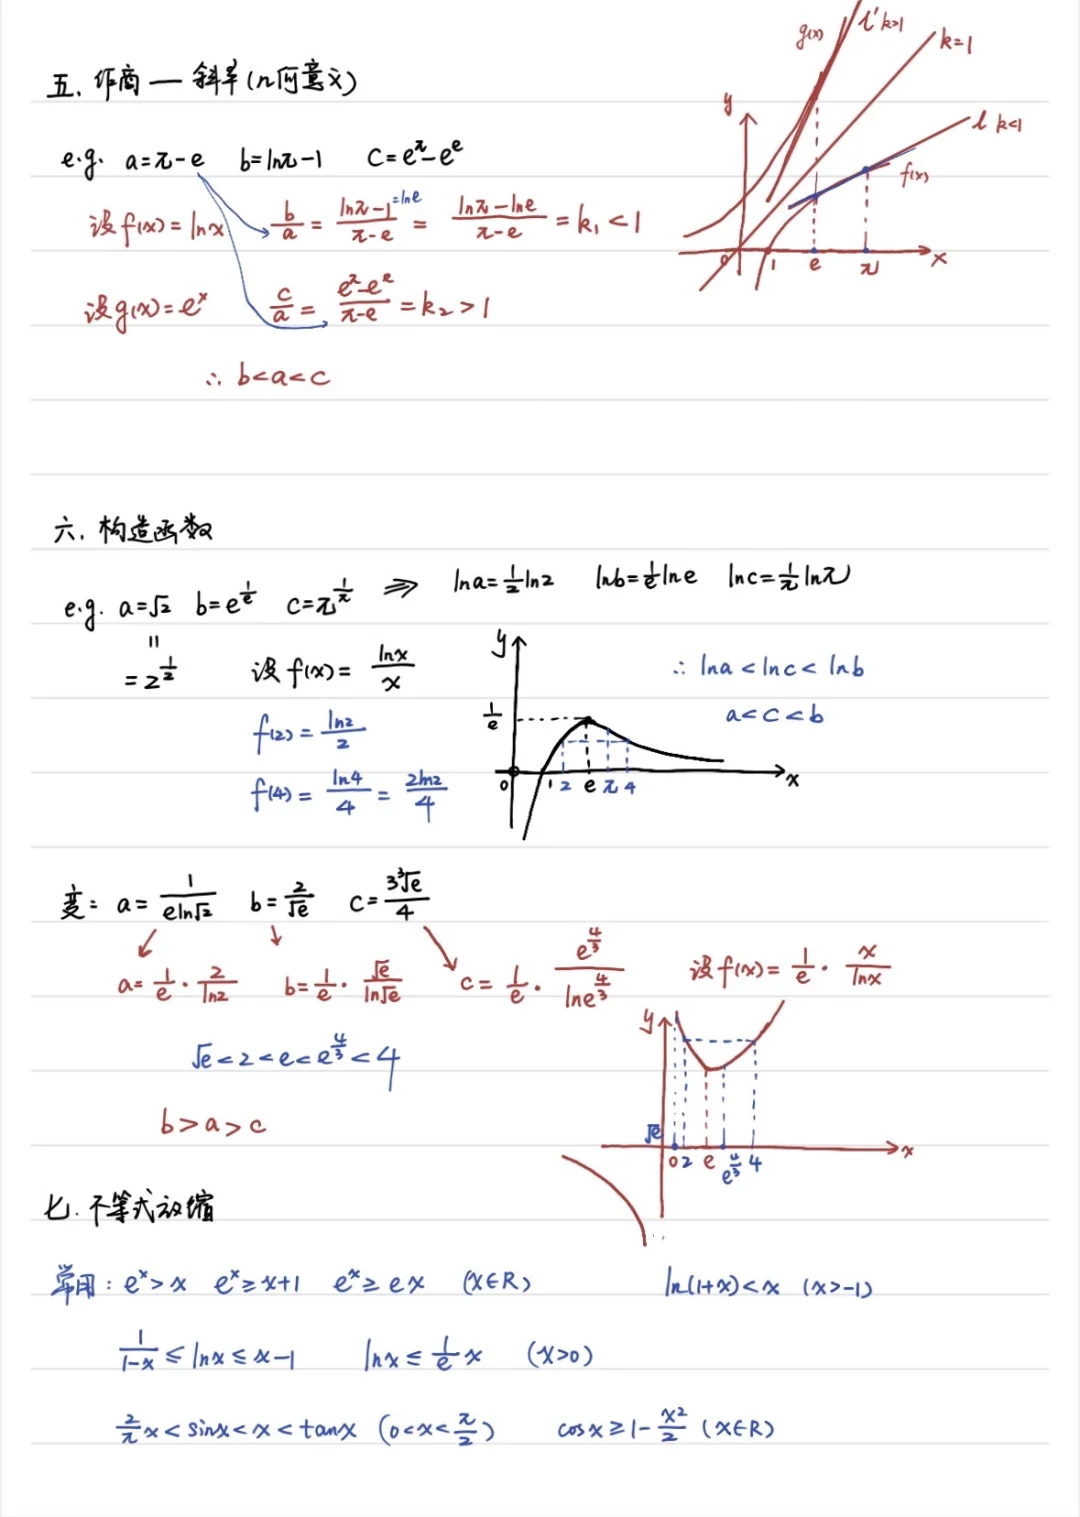 五、作商 — 斜率(几何意义)
e.g. a=π-e b=lnπ-1 c=e^π-e^e
设f(x)=lnx b/a = (lnπ-1)/(π-e) = (lnπ-lne)/(π-e) = k₁<1
=lne
设g(x)=e^x c/a = (e^π-e^e)/(π-e) = k₂>1
∴ b<a<c
g(x) l' k>1
k=1
l k<1
f(x)
y
0 1 e π x
六、构造函数
e.g. a=√2 b=e^(1/e) c=π^(1/π) ⇒ lna=1/2 ln2 lnb=1/e lne lnc=1/π lnπ
=2^(1/2) 设f(x)= lnx/x
f(2)= ln2/2
f(4)= ln4/4 = 2ln2/4
y
1/e
0 1 2 e π 4 x
∴ lna<lnc<lnb
a<c<b
变: a= 1/(eln√2) b= 2/√e c= 3∛e/4
a= 1/e · 2/ln2 b= 1/e · √e/ln√e c= 1/e · e^(4/3)/lne^(4/3) 设f(x)= 1/e · x/lnx
√e<2<e<e^(4/3)<4
b>a>c
y
√e
0 2 e e^(4/3) 4 x
七.不等式放缩
常用: e^x>x e^x≥x+1 e^x≥ex (x∈R) ln(1+x)<x (x>-1)
1/(1-x) ≤ lnx ≤ x-1 lnx ≤ 1/e x (x>0)
2/π x<sinx<x<tanx (0<x<π/2) cosx≥1-x²/2 (x∈R)